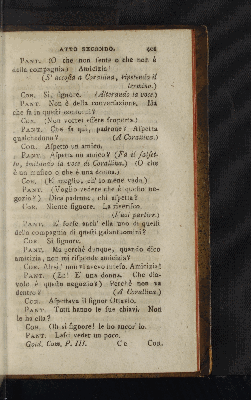 ATTO SECONDO. 401
PANT. (O che non sente o che non è
della compagnia) Amicizia!
(S' accosta a Coralina, ripetendo il
termine.)
COR. Sì, signore. (Alterando la voce.)
PANT. Non è della conversazione. Ma
che fa in questi contorni?
COR. (Non vorrei essere scoperta.)
PANT. Che fa quì, padrone? Aspetta
qualcheduno? (A Coralina.)
COR. Aspetto un amico.
PANT. Aspetta un amico? (Fa il falset-
to, imitando la voce di Coralina.) (O che
è un musico o che è una donna.)
COR. (È meglio, ch' io me ne vada.)
PANT. (Voglio vedere che è questo ne-
gozio?) Dica padrone, chi aspetta?
COR. Niente signore. La riverisco.
(Vuol partire.)
PANT. È forse anch' ella uno di quelli
della compagnia di questi galantuomini?
COR. Sì signore.
PANT. Ma perchè dunque, quando dico
amicizia, non mi risponde amicizia?
COR. Amicizia!
PANT. (Eh! È una donna. Che dia-
volo è questo negozio?) Perchè non va
dentro? (A Coralina.)
COR. Aspettava il signor Ottavio.
PANT. Tutti hanno le sue chiavi. Non
le ha ella?
COR. Oh sì signore! le ho ancor' io.
PANT. Lasci veder un poco.
Gold. Com. P. III. Cc COR.